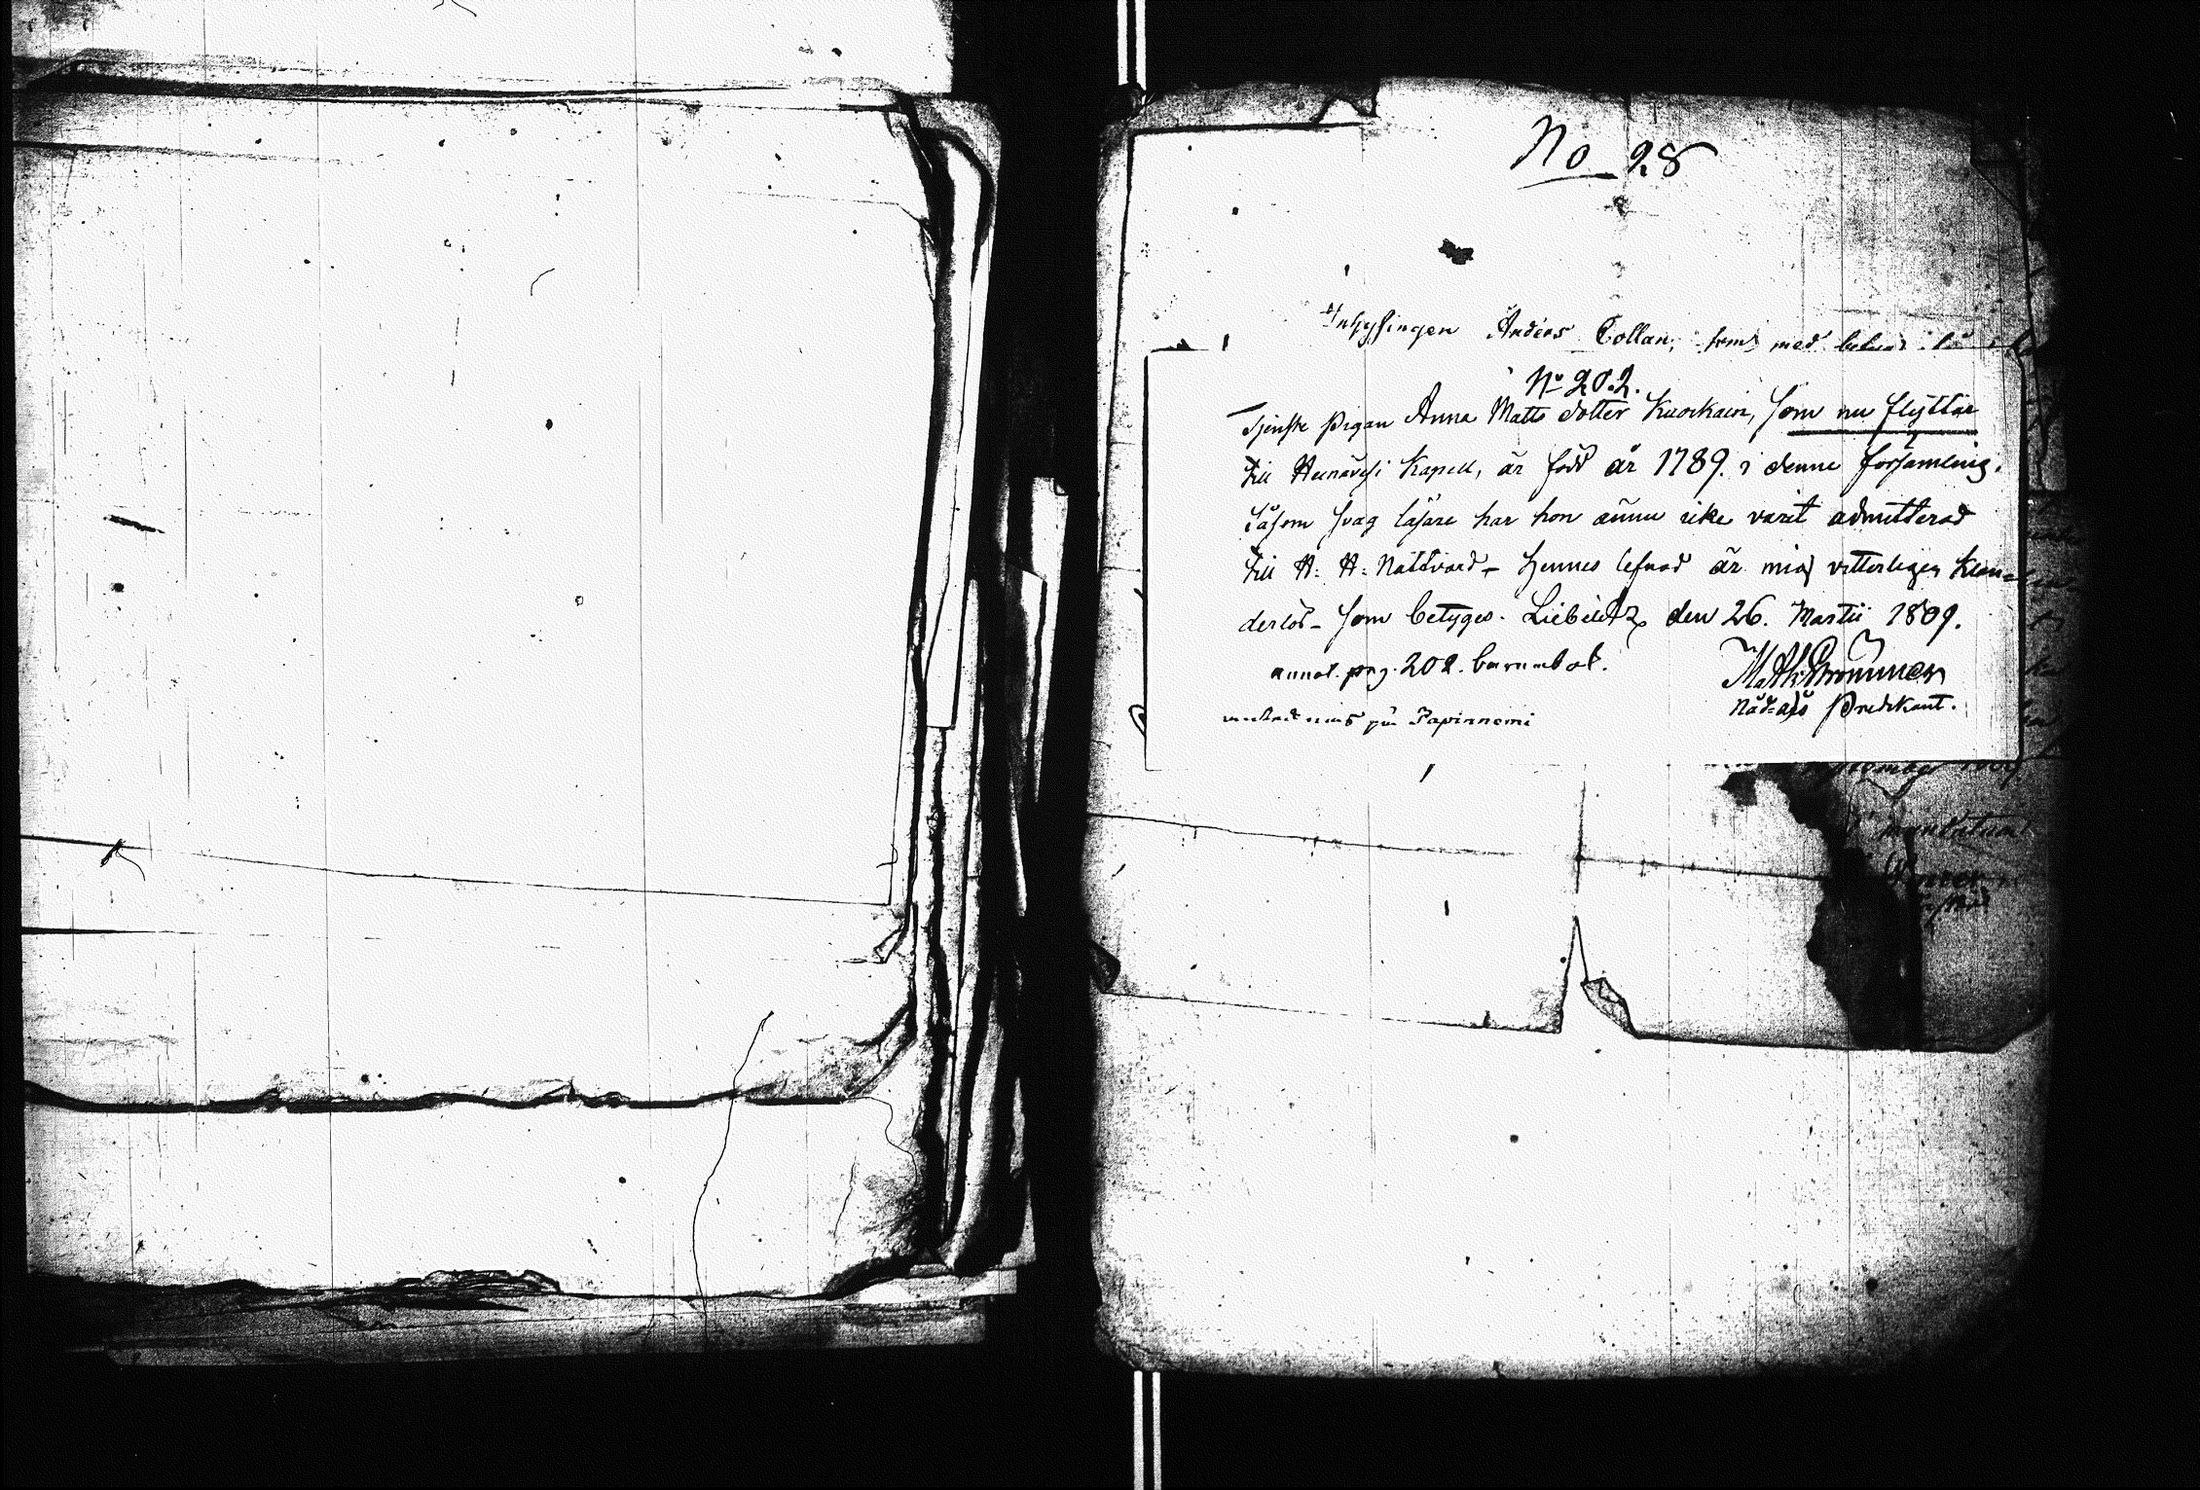 No 28
Inhysingen Anders Collan, som med
No 202.
Tjenste Pigan Anna Matts dotter Kuorkain, som nu flyttar
till Heinävesi Kapell, är född år 1789. i denne församling.
Såsom svag läsare har hon ännu icke varit admitterad
till H. H. Nattvard - Hennes lefnad är mig vitterligen klan-
derlös - som betygas. Liebelitz den 26. Martii 1809.
annot. pag. 202. barnabok.
Matth
Nåd-års Predikant.
på Papinniemi
1809